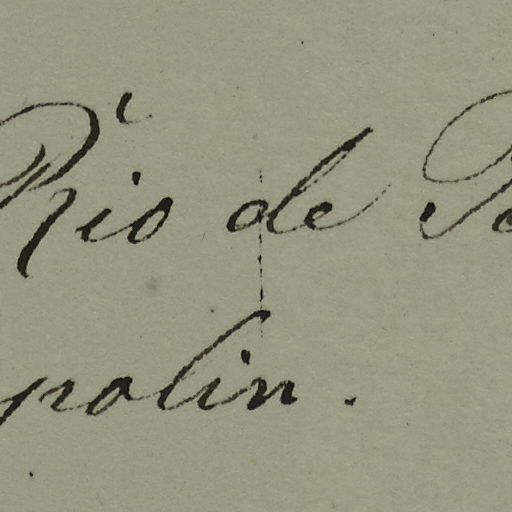 Rio de
polin.